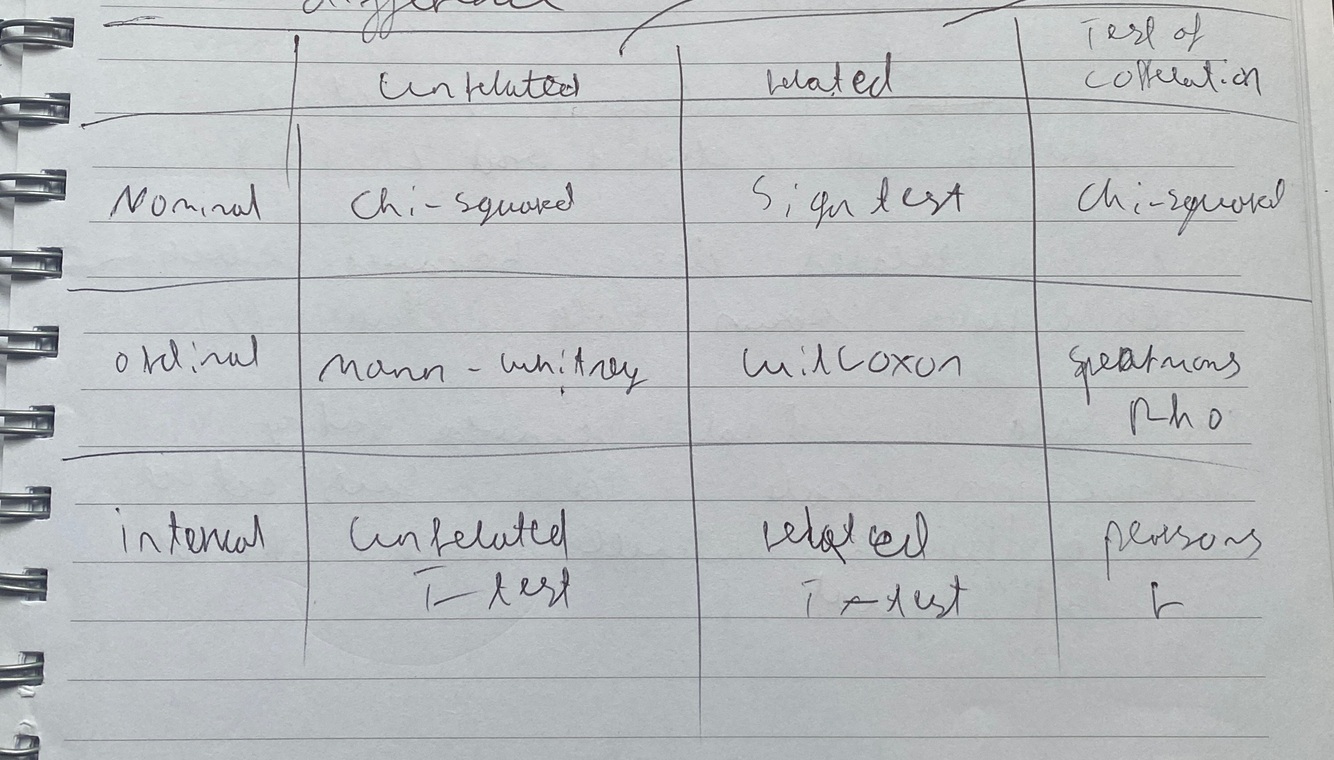 Test of
unrelated related correlation
Nominal Chi-squared Sign test Chi-squared
ordinal Mann-Whitney Wilcoxon spearmans
Rho
interval unrelated related pearsons
T-test T-test r